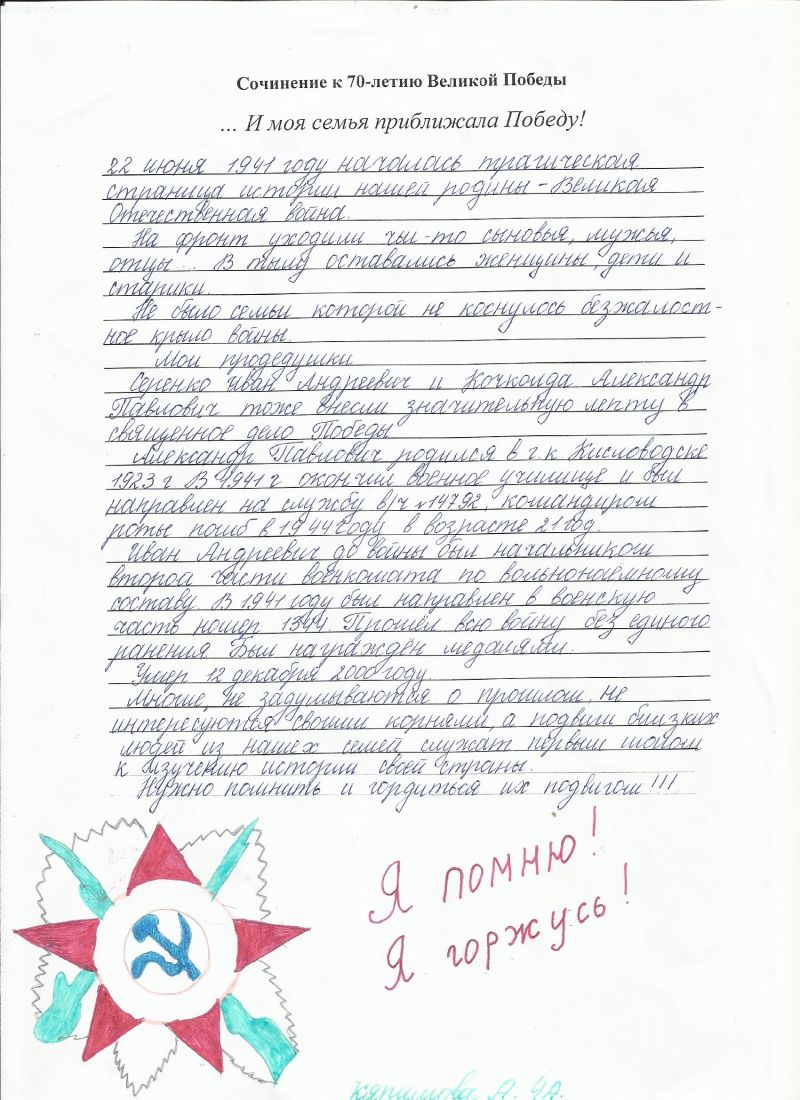 Сочинение к 70-летию Великой Победы
... И моя семья приближала Победу!
22 июня 1941 году началась трагическая
страница истории нашей родины - Великая
Отечественная война.
На фронт уходили чьи-то сыновья, мужья,
отцы... В тылу оставались женщины, дети и
старики.
Не было семьи которой не коснулось безжалост-
ное крыло войны.
Мои продедушки
Серенко Иван Андреевич и Кочкалда Александр
Павлович тоже внесли значительную лепту в
священное дело Победы
Александр Павлович родился в г.к. Кисловодске
1923 г В 1941 г окончил военное училище и был
направлен на службу в/ч №14792, командиром
роты погиб в 1944 году в возрасте 21 год.
Иван Андреевич до войны был начальником
второа части военкомата по вольнонаёмному
составу. В 1941 году был направлен в воен­скую
часть номер 1344. Прошёл всю войну без единого
ранения Был награждён медалями.
Умер 12 декабря 2000 году.
Многие, не задумываются о прошлом, не
интересуются своими корнями, а подвиги близких
людей из нашех семей служат первым шагом
к изучению истории своей страны.
Нужно помнить и гордиться их подвигом!!!
Я помню!
Я горжусь!
А. 4А.